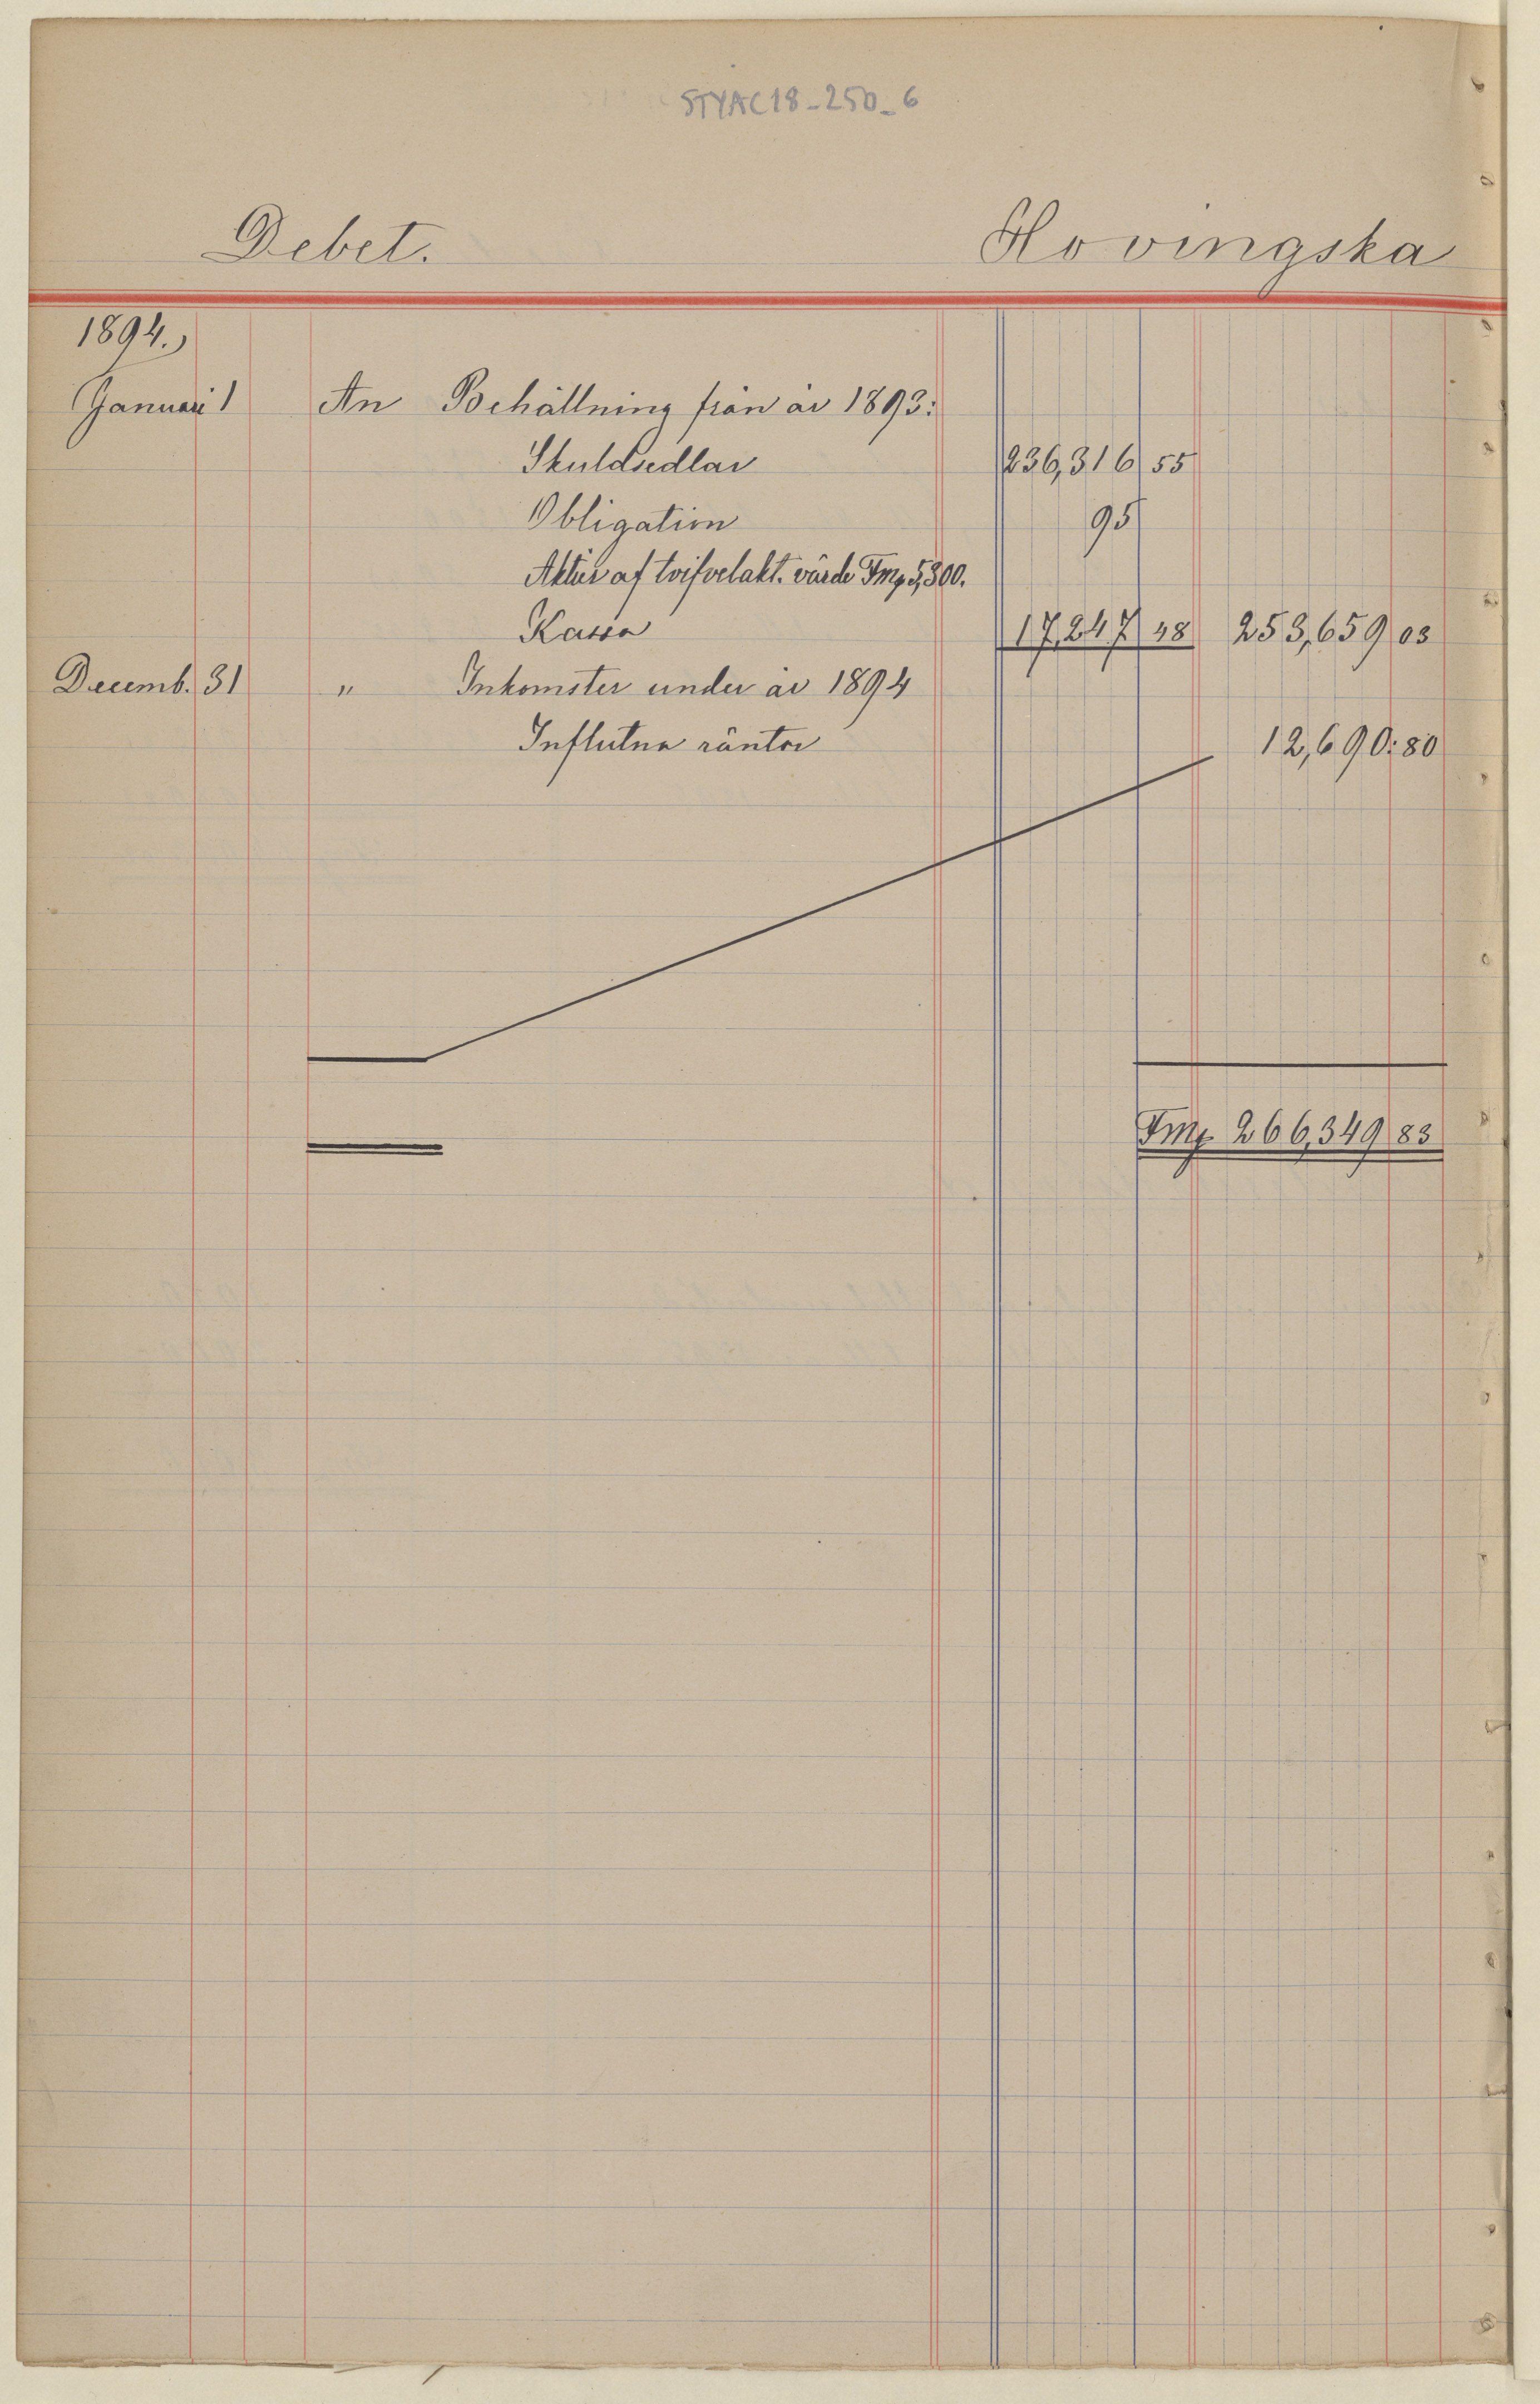 STYAC18-250-6
Debet. Hovingska
1894.,
Januari 1 An Behållning från år 1893:
Skuldsedlar 236,316 55
Obligation 95
Aktier af tvifvelakt. värde Fmg 5,300.
Kassa 17,247 48 253,659 03
Decemb. 31 " Inkomster under år 1894
Influtna räntor 12,690:80
Fmg 266,349 83